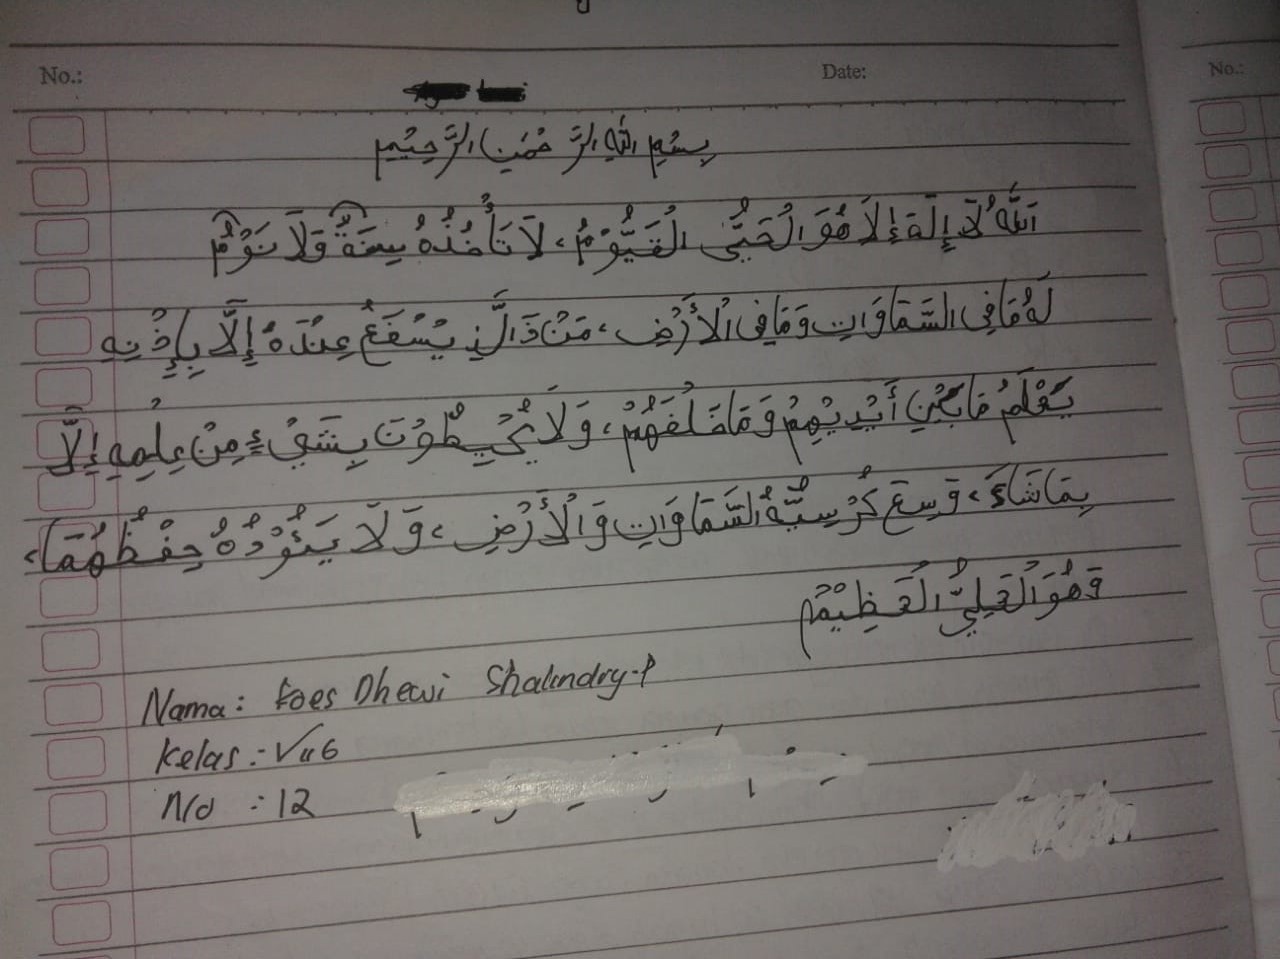 No.: Date: No.:
بِسْمِ اللهِ الرَّحْمٰنِ الرَّحِيْمِ
اَللّٰهُ لَآ إِلٰهَ إِلَّا هُوَ الْحَيُّ الْقَيُّوْمُ، لَا تَأْخُذُهُ سِنَةٌ وَّلَا نَوْمٌ
لَهُ مَا فِي السَّمَاوَاتِ وَمَا فِي الْأَرْضِ، مَنْ ذَالَّذِ يَسْفَعُ عِنْدَهُ إِلَّا بِإِذْنِهِ
يَعْلَمُ مَا بَيْنَ أَيْدِيْهِمْ وَمَا خَلْفَهُمْ، وَلَا يُحِيْطُوْنَ بِشَيْءٍ مِنْ عِلْمِهِ إِلَّا
بِمَا شَاءَ، وَسِعَ كُرْسِيُّهُ السَّمَاوَاتِ وَالْأَرْضِ، وَلَا يَئُوْدُهُ حِفْظُهُمَا،
وَهُوَ الْعَلِيُّ الْعَظِيْمُ
Nama: Foes Dhewi Shalindry.P
Kelas : VII 6
No : 12